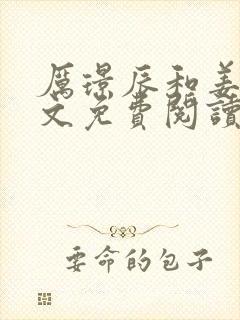 厲璟辰和姜
文免費閱讀
要命的包子